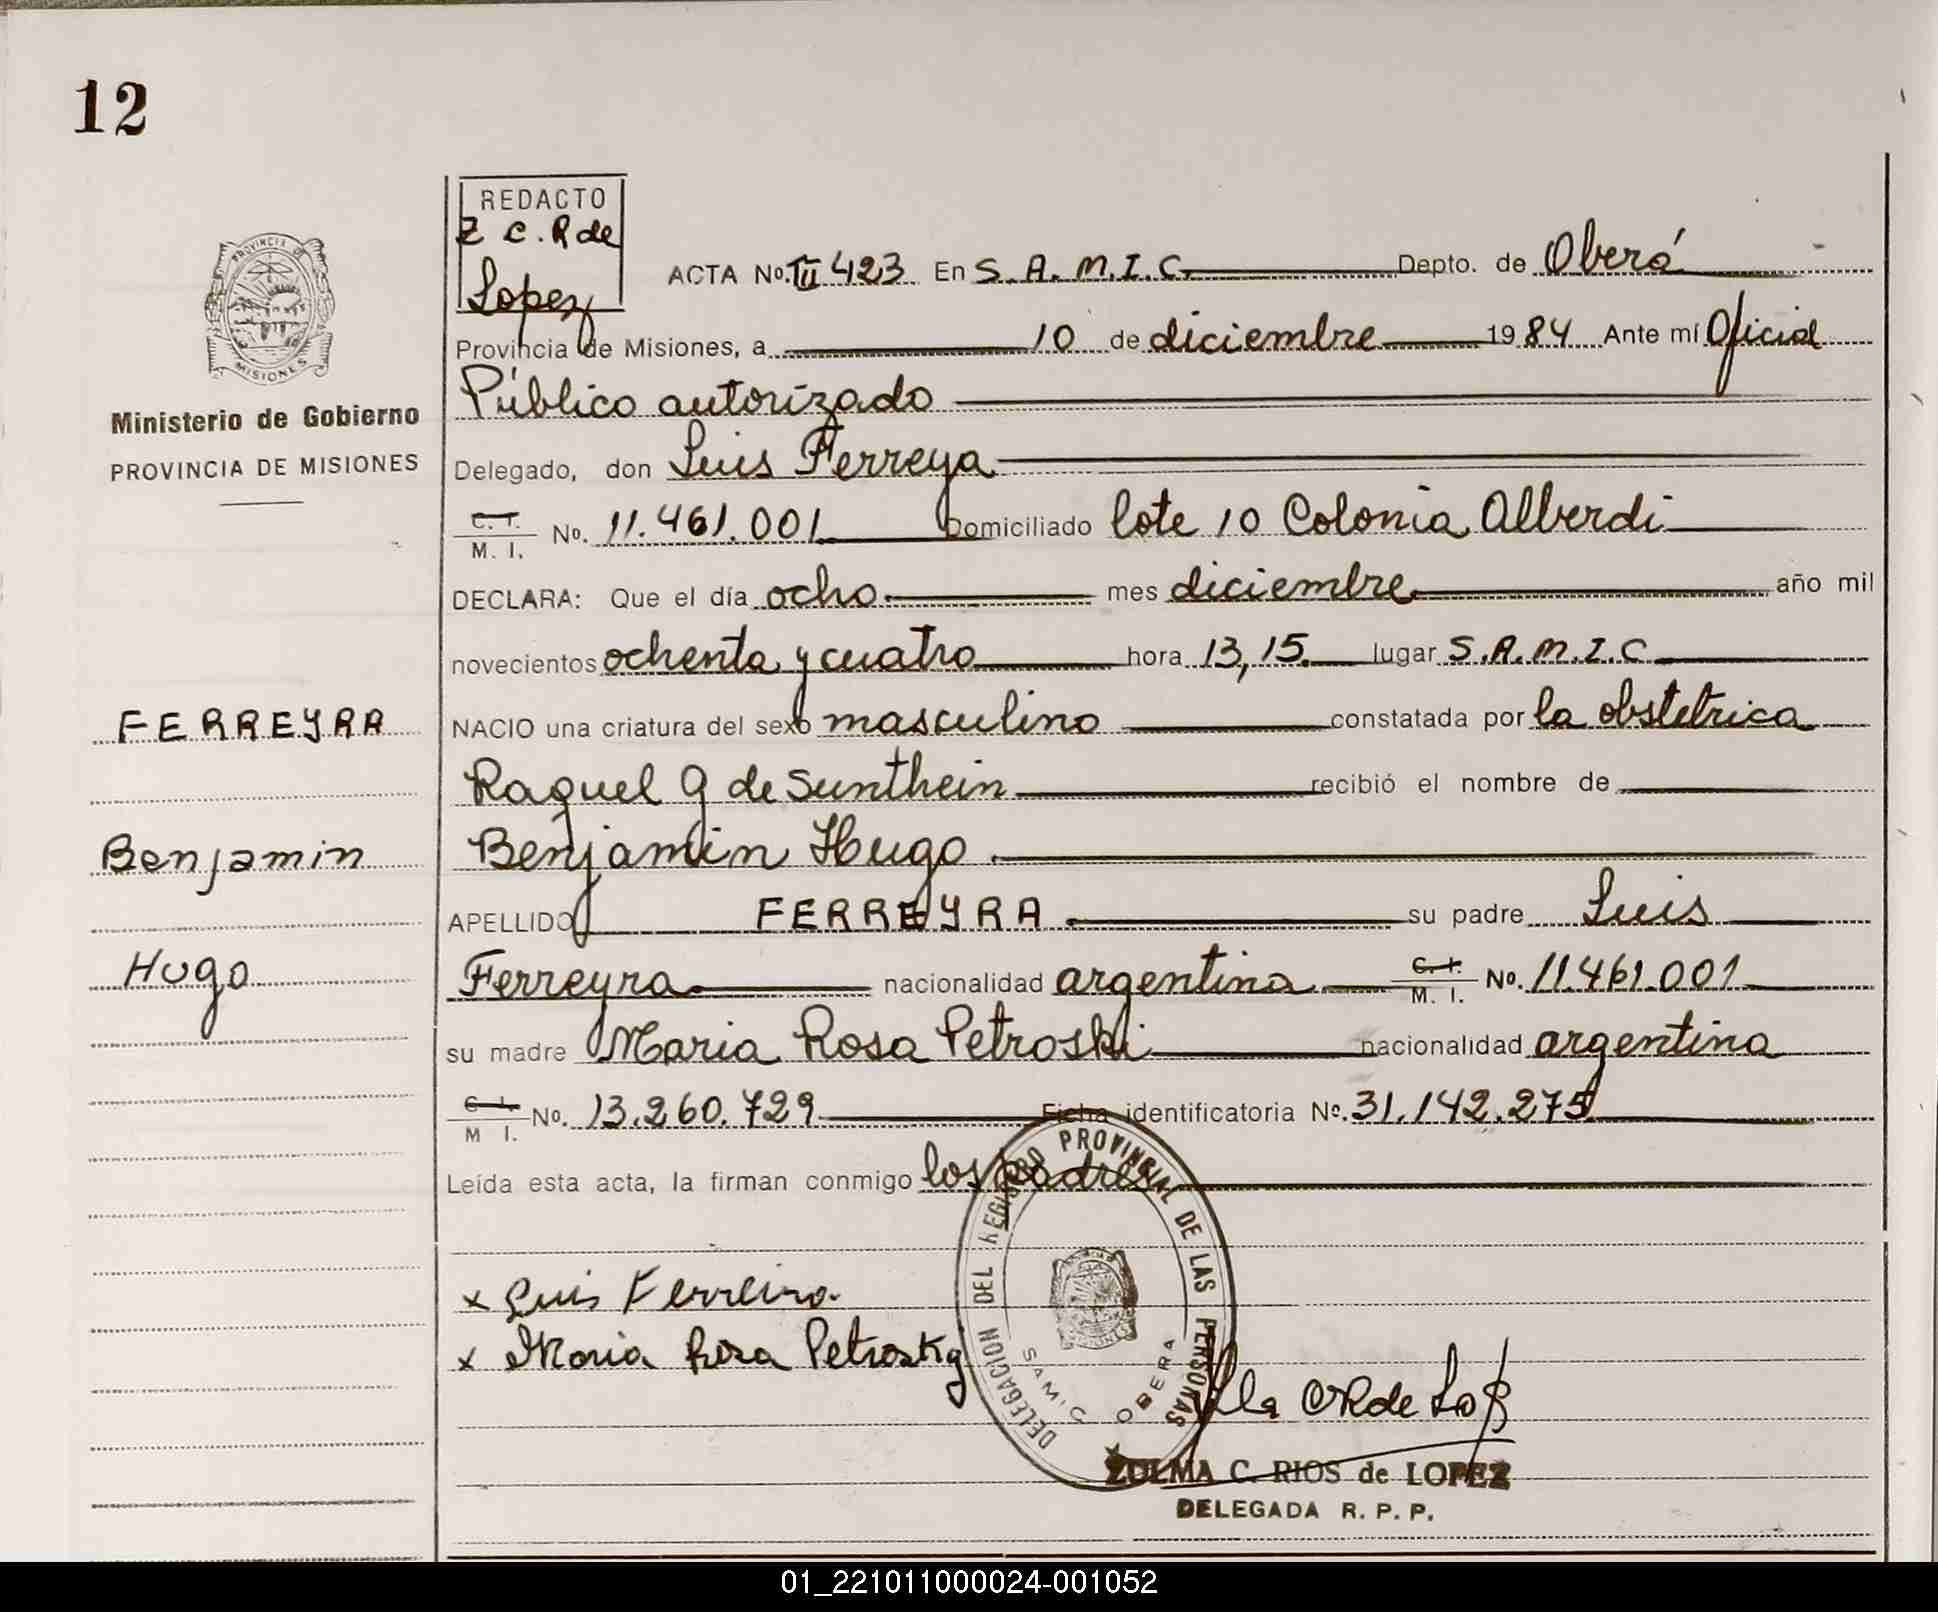 12
REDACTO
Z C. R de
Lopez
ACTA No. III 423 En S. A. M. I. C. Depto. de Oberá
Provincia de Misiones, a 10 de diciembre 1984 Ante mí Oficial
Público autorizado
PROVINCIA DE
MISIONES
Ministerio de Gobierno
PROVINCIA DE MISIONES
Delegado, don Luis Ferreya
C. I. M. I. No. 11.461.001 Domiciliado lote 10 Colonia Alberdi
DECLARA: Que el día ocho mes diciembre año mil
novecientos ochenta y cuatro hora 13,15 lugar S.A.M.I.C
FERREYRA
NACIO una criatura del sexo masculino constatada por la obstetrica
Raquel G de Sunthein recibió el nombre de
Benjamin
Benjamin Hugo
APELLIDO FERREYRA su padre Luis
Hugo
Ferreyra nacionalidad argentina C. I. M. I. No. 11.461.001
su madre Maria Rosa Petroski nacionalidad argentina
C. I. M I. No. 13.260.729 Ficha identificatoria No. 31.142.275
Leída esta acta, la firman conmigo los padres
x Luis Ferreira
x Maria Rosa Petrosky
DELEGACION DEL REGISTRO PROVINCIAL DE LAS PERSONAS
SAMIC OBERA
ZULMA C. RIOS de LOPEZ
DELEGADA R. P. P.
01_221011000024-001052